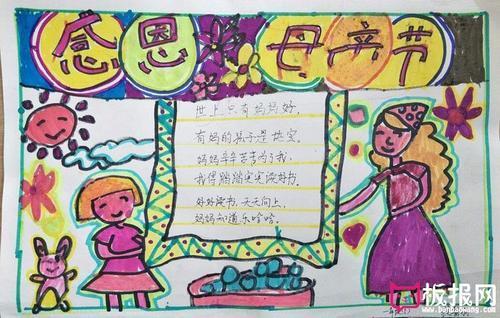 感恩母亲节
世上只有妈妈好,
有妈的孩子是块宝.
妈妈辛辛苦苦为了我,
我得踏踏实实读好书.
好好读书,天天向上,
妈妈知道乐哈哈.
板报网
www.banbaowang.com